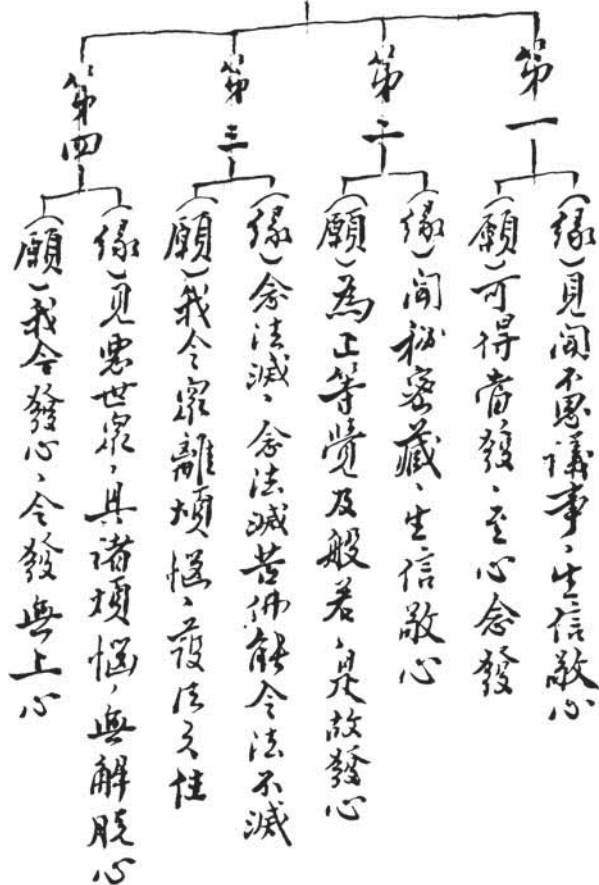 第一
(緣)見聞不思議事、生信敬心
(願)可得當發、至心念發
第二
(緣)聞秘密藏、生信敬心
(願)為正等覺及般若、是故發心
第三
(緣)念法滅、念法滅苦佛能令法不滅
(願)我令眾離煩惱、護法久住
第四
(緣)見惡世眾、具諸煩惱、無解脫心
(願)我今發心、令發無上心